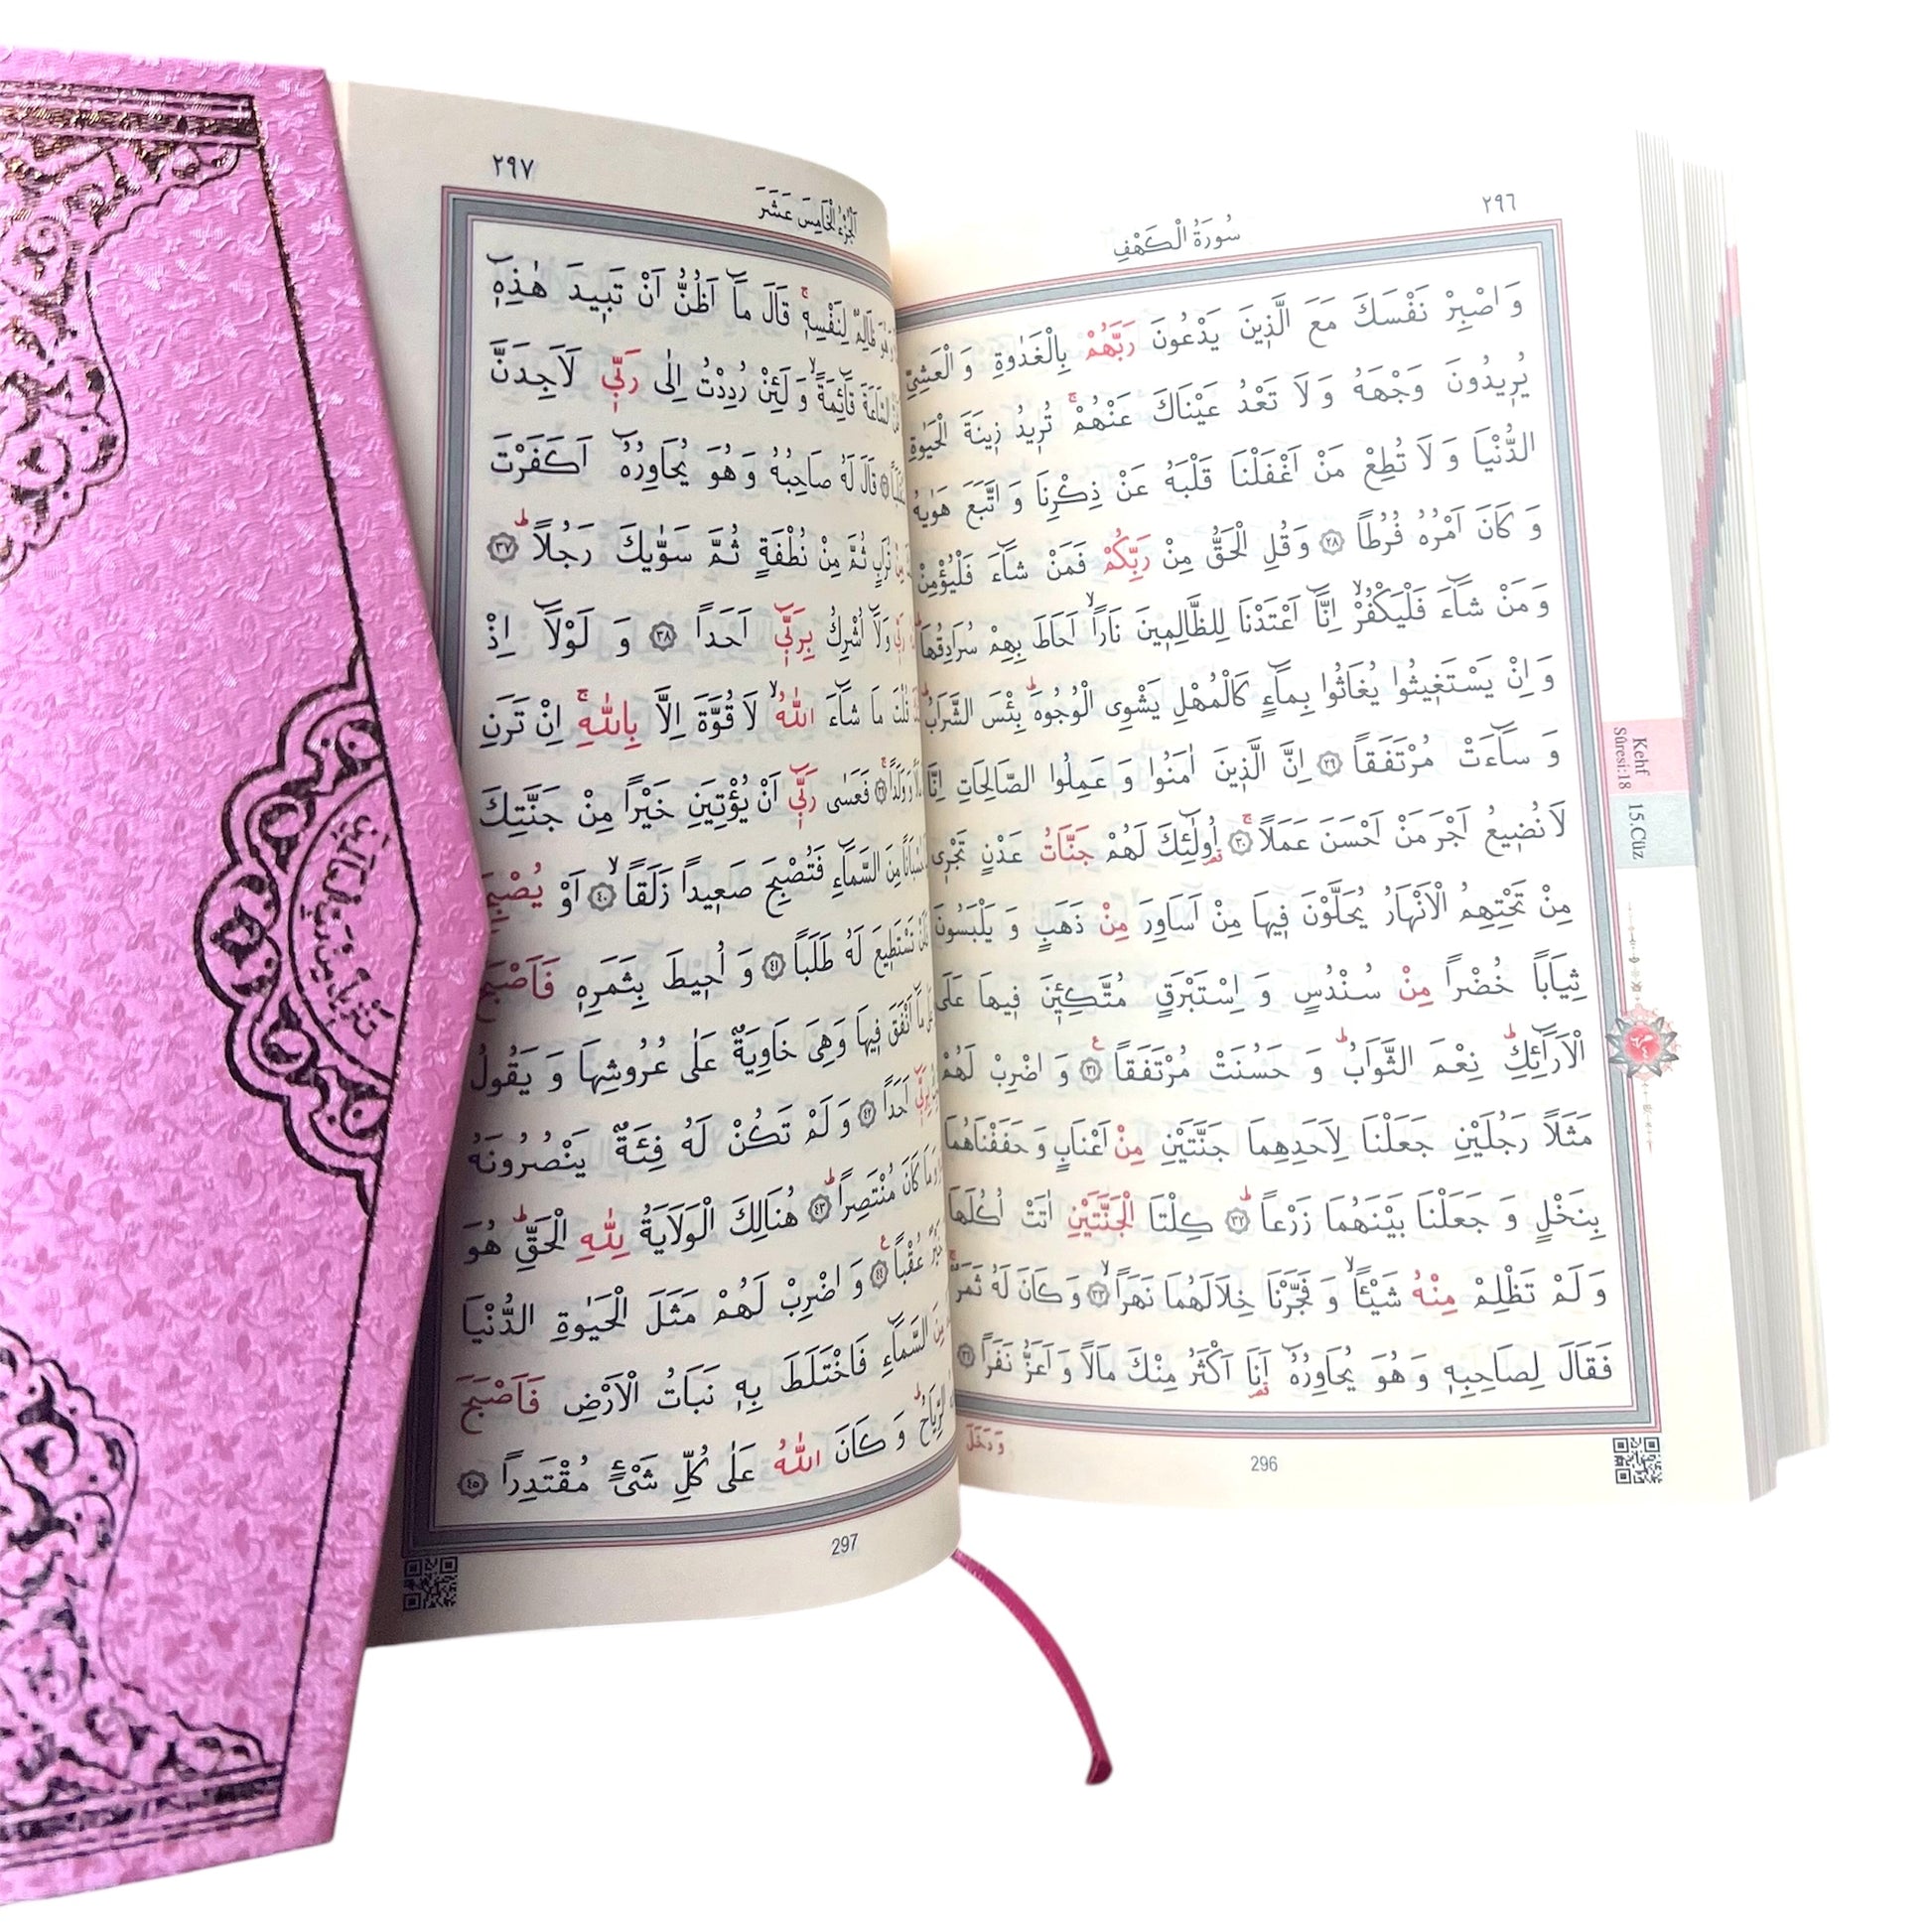 ٢٩٦
سُورَةُ الْكَهْفِ
وَاصْبِرْ نَفْسَكَ مَعَ الَّذ۪ينَ يَدْعُونَ رَبَّهُمْ بِالْغَدٰوةِ وَالْعَشِيِّ
يُر۪يدُونَ وَجْهَهُ وَلَا تَعْدُ عَيْنَاكَ عَنْهُمْۚ تُر۪يدُ ز۪ينَةَ الْحَيٰوةِ
الدُّنْيَا وَلَا تُطِعْ مَنْ اَغْفَلْنَا قَلْبَهُ عَنْ ذِكْرِنَا وَاتَّبَعَ هَوٰيهُ
وَكَانَ اَمْرُهُ فُرُطاً ﴿٢٨﴾ وَقُلِ الْحَقُّ مِنْ رَبِّكُمْ فَمَنْ شَٓاءَ فَلْيُؤْمِنْ
وَمَنْ شَٓاءَ فَلْيَكْفُرْۙ اِنَّٓا اَعْتَدْنَا لِلظَّالِم۪ينَ نَاراًۙ اَحَاطَ بِهِمْ سُرَادِقُهَاۜ
وَاِنْ يَسْتَغ۪يثُوا يُغَاثُوا بِمَٓاءٍ كَالْمُهْلِ يَشْوِى الْوُجُوهَۜ بِئْسَ الشَّرَابُۜ
وَسَٓاءَتْ مُرْتَفَقاً ﴿٢٩﴾ اِنَّ الَّذ۪ينَ اٰمَنُوا وَعَمِلُوا الصَّالِحَاتِ اِنَّا
لَا نُض۪يعُ اَجْرَ مَنْ اَحْسَنَ عَمَلاًۚ ﴿٣٠﴾ اُو۬لٰٓئِكَ لَهُمْ جَنَّاتُ عَدْنٍ تَجْر۪ى
مِنْ تَحْتِهِمُ الْاَنْهَارُ يُحَلَّوْنَ ف۪يهَا مِنْ اَسَاوِرَ مِنْ ذَهَبٍ وَيَلْبَسُونَ
ثِيَاباً خُضْراً مِنْ سُنْدُسٍ وَاِسْتَبْرَقٍ مُتَّكِـ۪ٔينَ ف۪يهَا عَلَى
الْاَرَٓائِكِۜ نِعْمَ الثَّوَابُۜ وَحَسُنَتْ مُرْتَفَقاً ﴿٣١﴾ وَاضْرِبْ لَهُمْ
مَثَلاً رَجُلَيْنِ جَعَلْنَا لِاَحَدِهِمَا جَنَّتَيْنِ مِنْ اَعْنَابٍ وَحَفَفْنَاهُمَا
بِنَخْلٍ وَجَعَلْنَا بَيْنَهُمَا زَرْعاًۜ ﴿٣٢﴾ كِلْتَا الْجَنَّتَيْنِ اٰتَتْ اُكُلَهَا
وَلَمْ تَظْلِمْ مِنْهُ شَيْـٔاًۙ وَفَجَّرْنَا خِلَالَهُمَا نَهَراًۙ ﴿٣٣﴾ وَكَانَ لَهُ ثَمَرٌۚ
فَقَالَ لِصَاحِبِه۪ وَهُوَ يُحَاوِرُهُٓ اَنَا۬ اَكْثَرُ مِنْكَ مَالاً وَاَعَزُّ نَفَراً ﴿٣٤﴾
وَدَخَلَ
296
Kehf
Sûresi:18
15.Cüz
٢٩٧
اَلْجُزْءُ الْخَامِسَ عَشَرَ
ظَالِمٌ لِنَفْسِه۪ۚ قَالَ مَٓا اَظُنُّ اَنْ تَب۪يدَ هٰذِه۪ٓ
السَّاعَةَ قَٓائِمَةًۙ وَلَئِنْ رُدِدْتُ اِلٰى رَبّ۪ى لَاَجِدَنَّ
قَالَ لَهُ صَاحِبُهُ وَهُوَ يُحَاوِرُهُٓ اَكَفَرْتَ
تُرَابٍ ثُمَّ مِنْ نُطْفَةٍ ثُمَّ سَوّٰيكَ رَجُلاًۜ ﴿٣٧﴾
وَلَٓا اُشْرِكُ بِرَبّ۪ٓى اَحَداً ﴿٣٨﴾ وَلَوْلَٓا اِذْ
قُلْتَ مَا شَٓاءَ اللّٰهُۙ لَا قُوَّةَ اِلَّا بِاللّٰهِۚ اِنْ تَرَنِ
وَوَلَداًۚ ﴿٣٩﴾ فَعَسٰى رَبّ۪ٓى اَنْ يُؤْتِيَنِ خَيْراً مِنْ جَنَّتِكَ
مِنَ السَّمَٓاءِ فَتُصْبِحَ صَع۪يداً زَلَقاًۙ ﴿٤٠﴾ اَوْ يُصْبِحَ
تَسْتَط۪يعَ لَهُ طَلَباً ﴿٤١﴾ وَاُح۪يطَ بِثَمَرِه۪ فَاَصْبَحَ
مَٓا اَنْفَقَ ف۪يهَا وَهِىَ خَاوِيَةٌ عَلٰى عُرُوشِهَا وَيَقُولُ
بِرَبّ۪ٓى اَحَداً ﴿٤٢﴾ وَلَمْ تَكُنْ لَهُ فِئَةٌ يَنْصُرُونَهُ
وَمَا كَانَ مُنْتَصِراًۜ ﴿٤٣﴾ هُنَالِكَ الْوَلَايَةُ لِلّٰهِ الْحَقِّۜ هُوَ
عُقْباً ﴿٤٤﴾ وَاضْرِبْ لَهُمْ مَثَلَ الْحَيٰوةِ الدُّنْيَا
مِنَ السَّمَٓاءِ فَاخْتَلَطَ بِه۪ نَبَاتُ الْاَرْضِ فَاَصْبَحَ
الرِّيَاحُۜ وَكَانَ اللّٰهُ عَلٰى كُلِّ شَىْءٍ مُقْتَدِراً ﴿٤٥﴾
297
تَنْز۪يلٌ مِنْ رَبِّ الْعَالَم۪ينَ